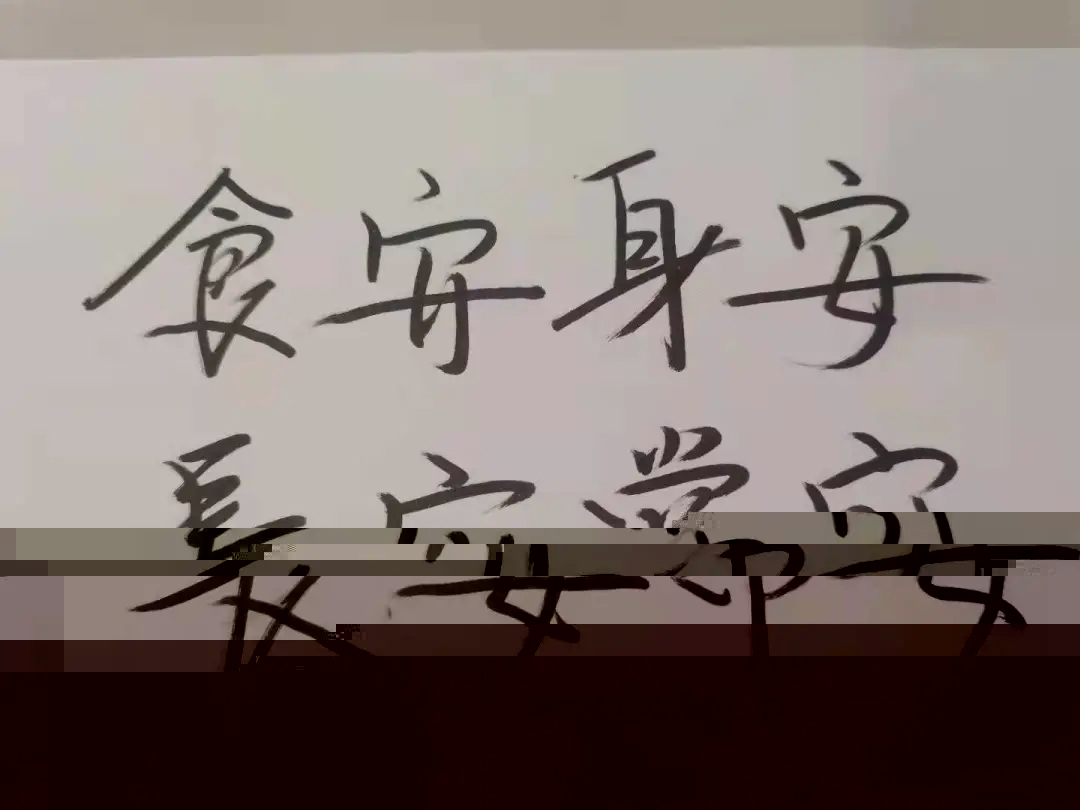 食安身安
長安常安